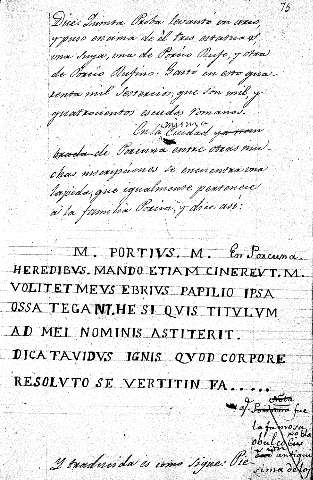 75
Dice: Quinta Proba levantó un arco,
y puso encima de él tres estatuas
una suya, una de Porcio Rufo, y otra
de Porcio Rufino. Gastó en esto qua-
renta mil sestercios, que son mil y
quatrocientos escudos romanos.
En la misma Ciudad
de Porcuna entre otras mu-
chas inscripciones se encuentra una
lapida, que igualmente pertenece
á la familia Porcia, y dice así:
M. PORTIVS. M. En Porcuna.
HEREDIBVS. MANDO ETIAM CINEREVT. M.
VOLITET MEVS EBRIVS PAPILIO IPSA
OSSA TEGANT, HE SI QVIS TITVLVM
AD MEI NOMINIS ASTITERIT.
DICAT AVIDVS IGNIS QVOD CORPORE
RESOLVTO SE VERTIT IN FA.....
Nota
fue
la famosa
obulco
antigui
Y traducida es como sigue: